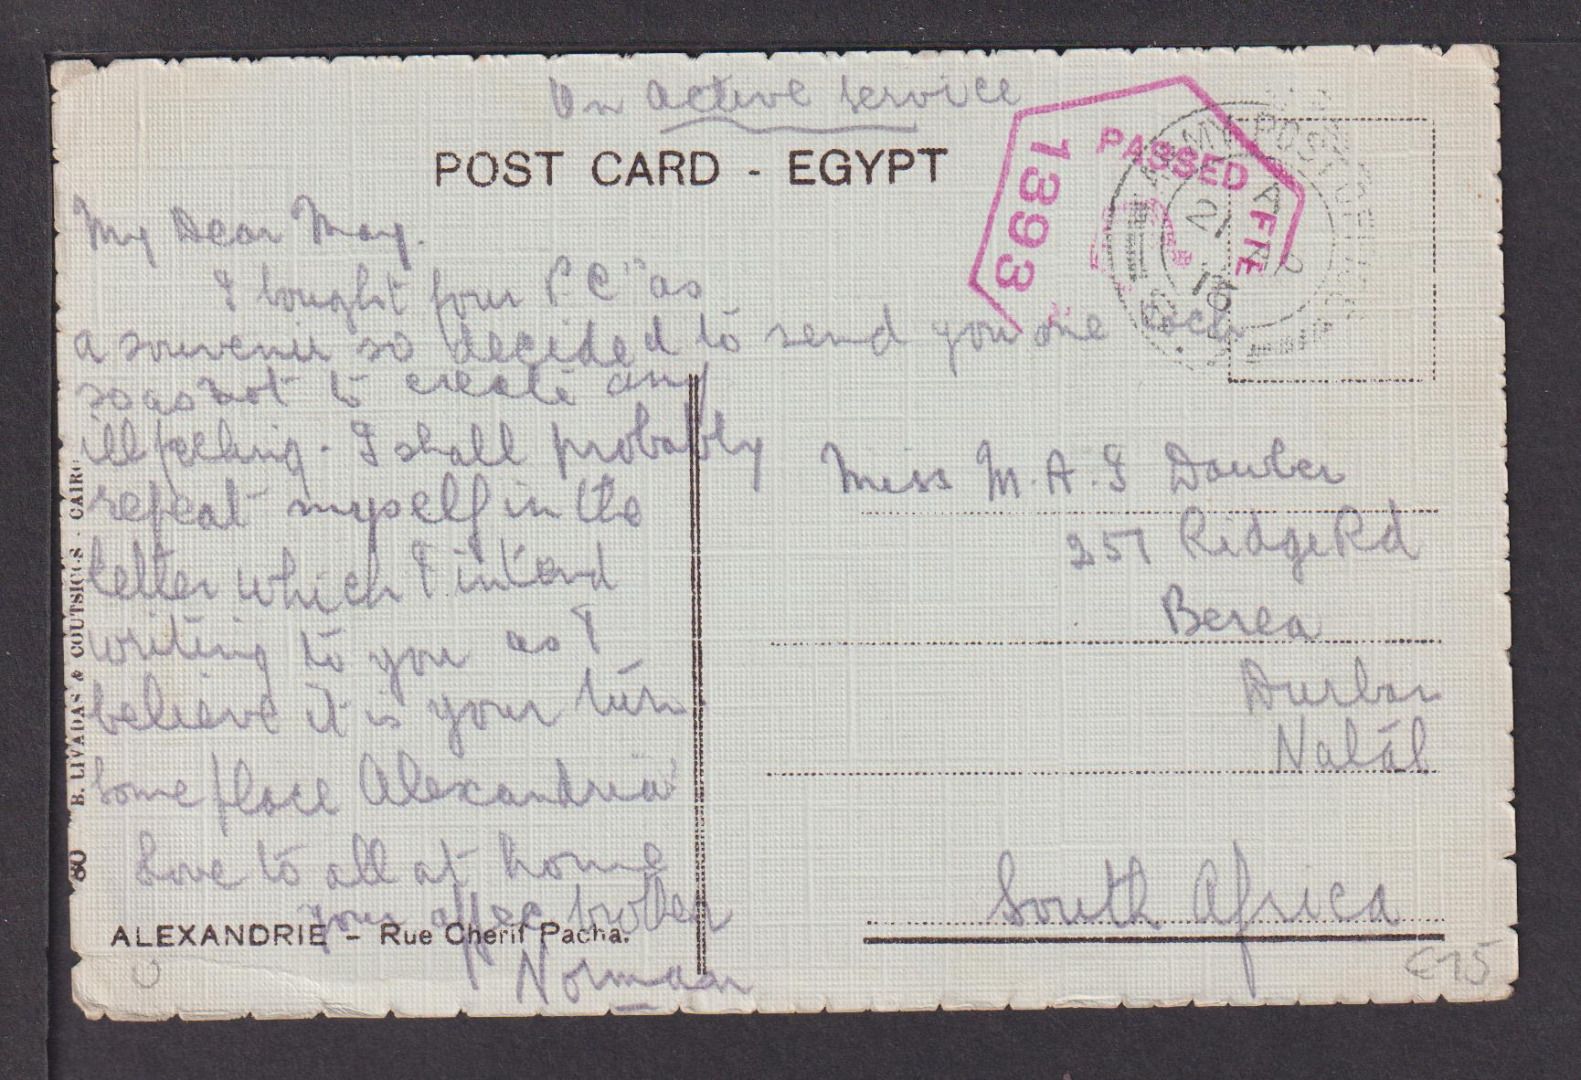 On active service
POST CARD - EGYPT
PASSED
1393
ARMY POST
A
21
AP
16
My Dear May.
I bought four P C" as
a souvenir so decided to send you one each
so as not to create any
ill feeling. I shall probably
repeat myself in the
letter which I intend
writing to you as I
believe it is your turn.
Some place Alexandria
Love to all at home
your affec brother
Norman
Miss M. A. I
257 Ridge Rd
Berea
Durban
Natal
South Africa
80 B. LIVADAS & COUTSICOS - CAIRO
ALEXANDRIE - Rue Cherif Pacha.
€15